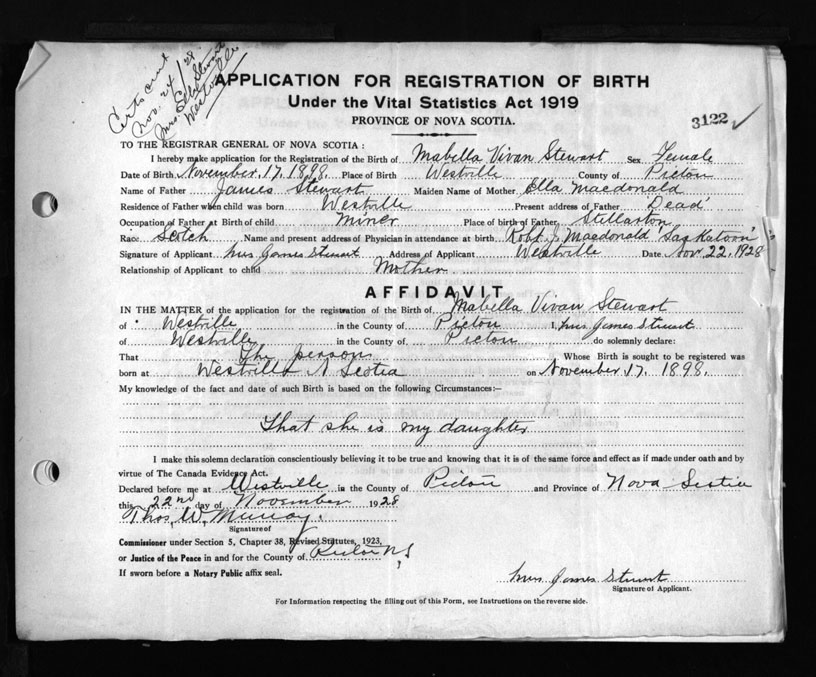 Certs sent
Nov. 24/28.
Mrs Stewart
Westville
APPLICATION FOR REGISTRATION OF BIRTH
Under the Vital Statistics Act 1919
PROVINCE OF NOVA SCOTIA.
3122 ✓
TO THE REGISTRAR GENERAL OF NOVA SCOTIA:
I hereby make application for the Registration of the Birth of Mabella Vivan Stewart Sex Female
Date of Birth November. 17, 1898. Place of Birth Westville County of Pictou
Name of Father James Stewart Maiden Name of Mother Ella Macdonald
Residence of Father when child was born Westville Present address of Father Dead
Occupation of Father at Birth of child Miner Place of birth of Father Stillarton
Race Scotch Name and present address of Physician in attendance at birth Robt J. Macdonald Saskatoon
Signature of Applicant Mrs James Stewart Address of Applicant Westville Date Nov. 22, 1928
Relationship of Applicant to child Mother
AFFIDAVIT
IN THE MATTER of the application for the registration of the Birth of Mabella Vivan Stewart
of Westville in the County of Pictou I, Mrs James Stewart
of Westville in the County of Pictou do solemnly declare:
That The person Whose Birth is sought to be registered was
born at Westville N Scotia on November. 17. 1898.
My knowledge of the fact and date of such Birth is based on the following Circumstances:—
That she is my daughter
I make this solemn declaration conscientiously believing it to be true and knowing that it is of the same force and effect as if made under oath and by
virtue of The Canada Evidence Act.
Declared before me at Westville in the County of Pictou and Province of Nova Scotia
this 22nd day of November 1928
Thos. W. Murray.
Signature of
Commissioner under Section 5, Chapter 38, Revised Statutes, 1923,
or Justice of the Peace in and for the County of Pictou NS
If sworn before a Notary Public affix seal.
Mrs James Stewart
Signature of Applicant.
For Information respecting the filling out of this Form, see Instructions on the reverse side.